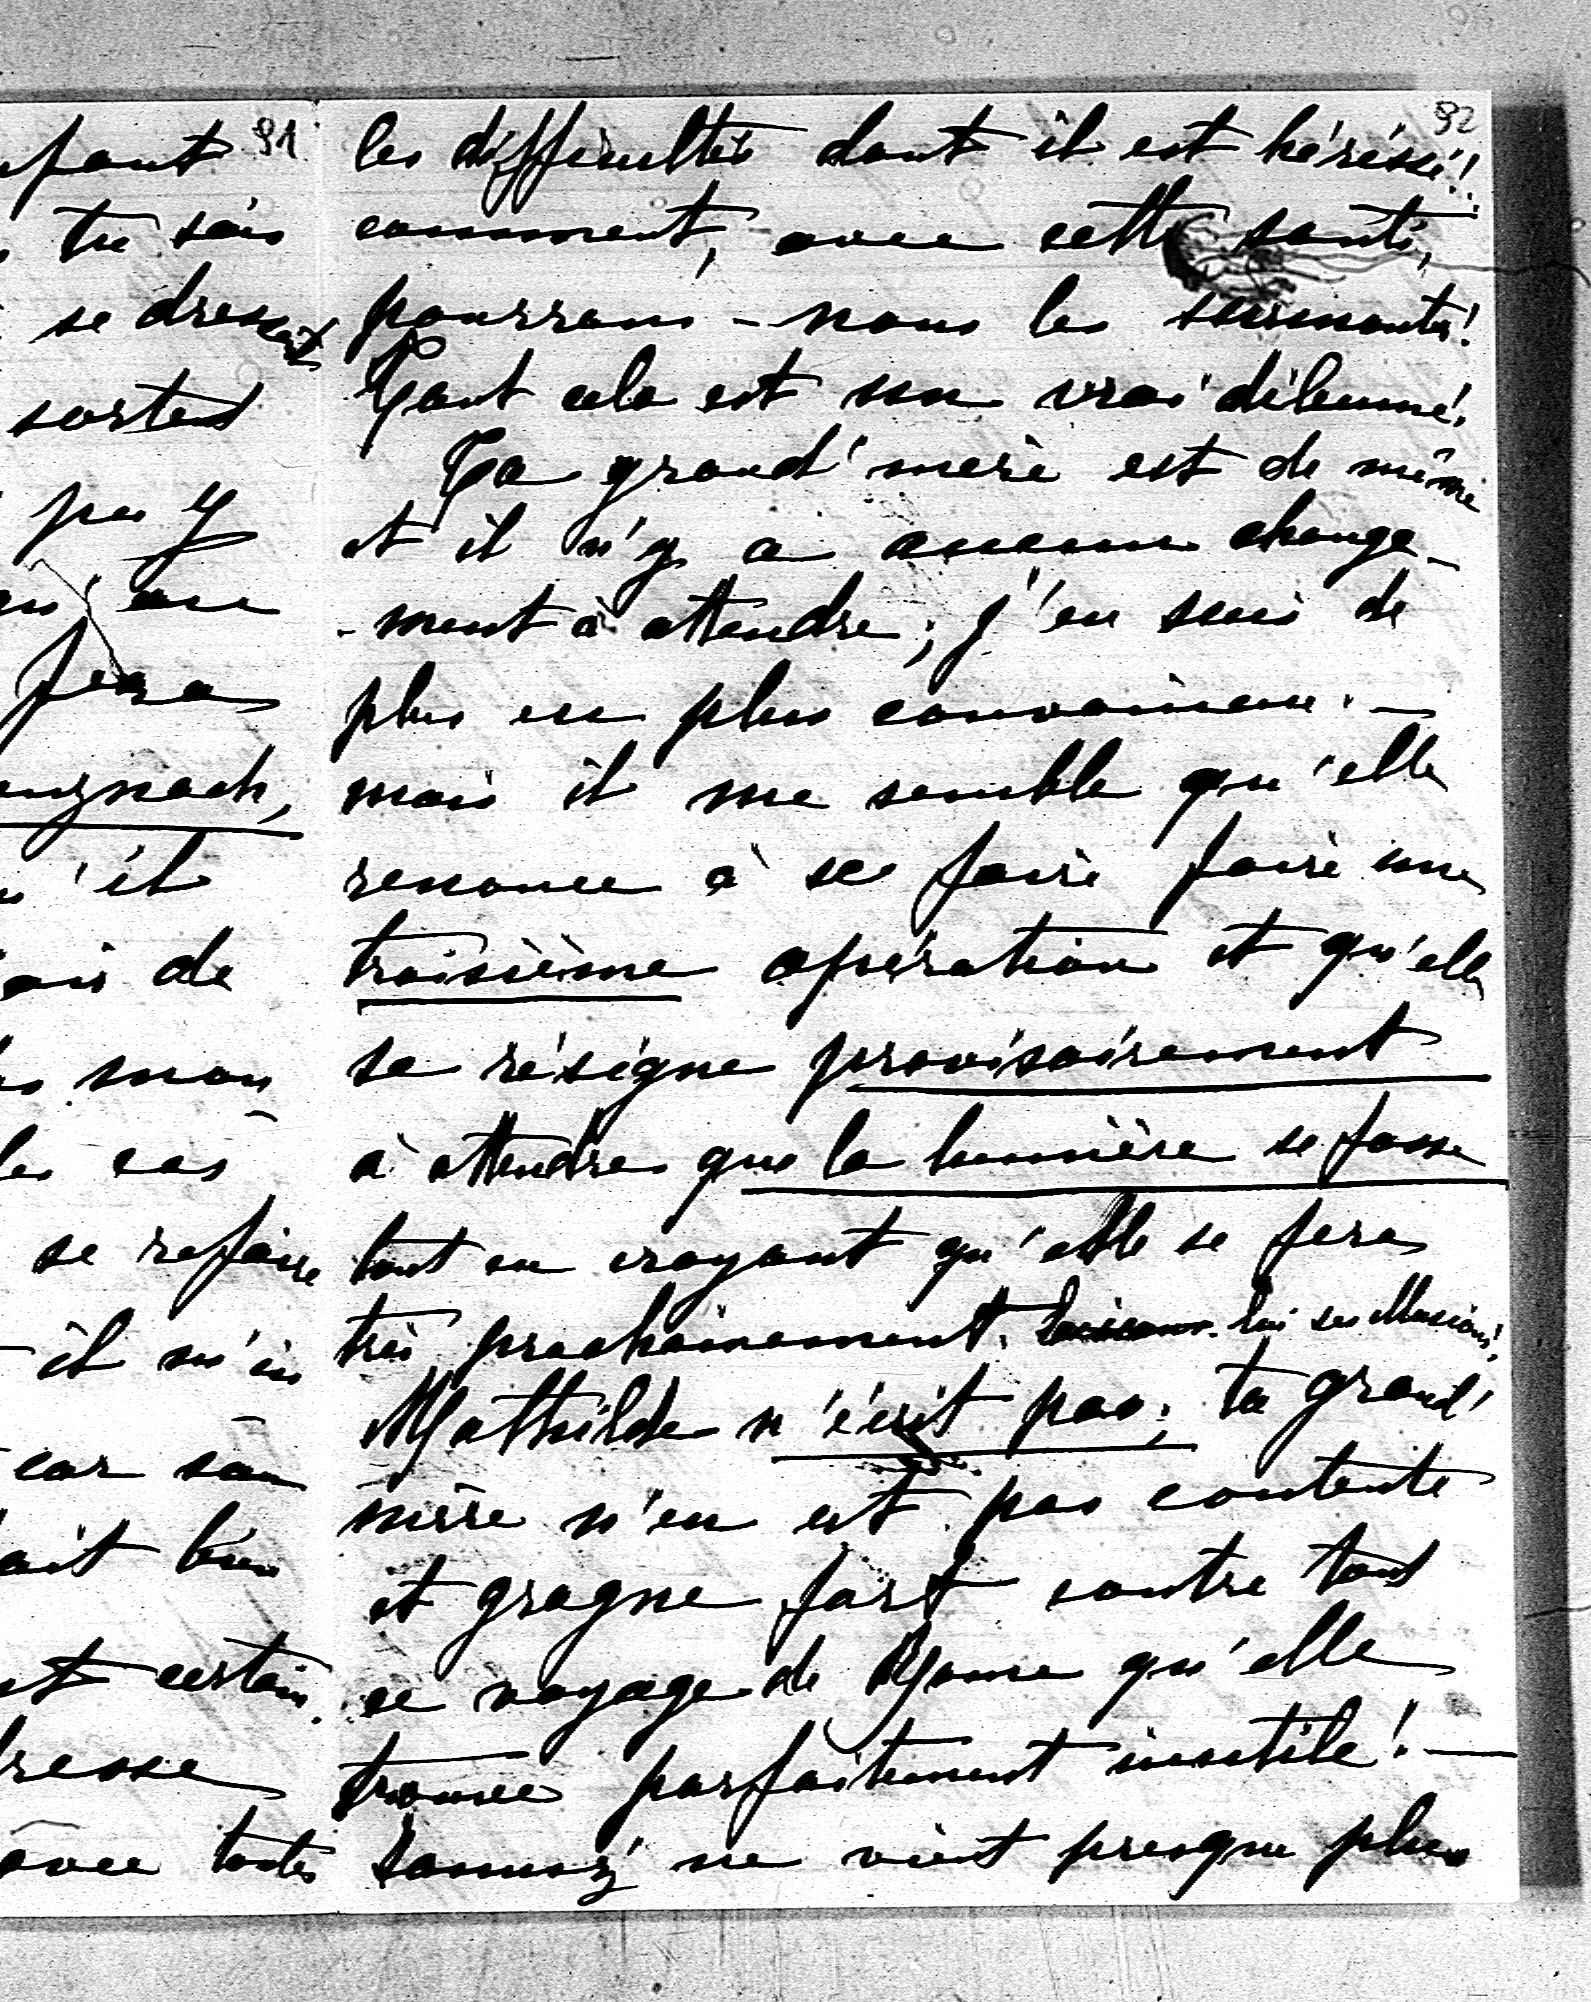 91
fant
tu sais
se dressait
sortent
pas y
fera
nach,
'il
de
mon
les cas
se refaire
il m'en
car son
ait bien
et certain.
resse
avec toutes
92
les difficultés dont il est hérissé!
comment, avec cette santé,
pourrons-nous les surmonter!
Tout cela est un vrai dilemme!
Ta grand'mère est de même
et il n'y a aucun change-
-ment à attendre; j'en suis de
plus en plus convaincu. —
mais il me semble qu'elle
renonce à se faire faire une
troisième opération et qu'elle
se résigne provisoirement
à attendre que la lumière se fasse
tout en croyant qu'elle se fera
très prochainement. Laissons-lui ses illusions.
Mathilde n'écrit pas; ta grand'
mère n'en est pas contente
et grogne fort contre tout
ce voyage de Rome qu'elle
trouve parfaitement inutile! —
ne vient presque plus